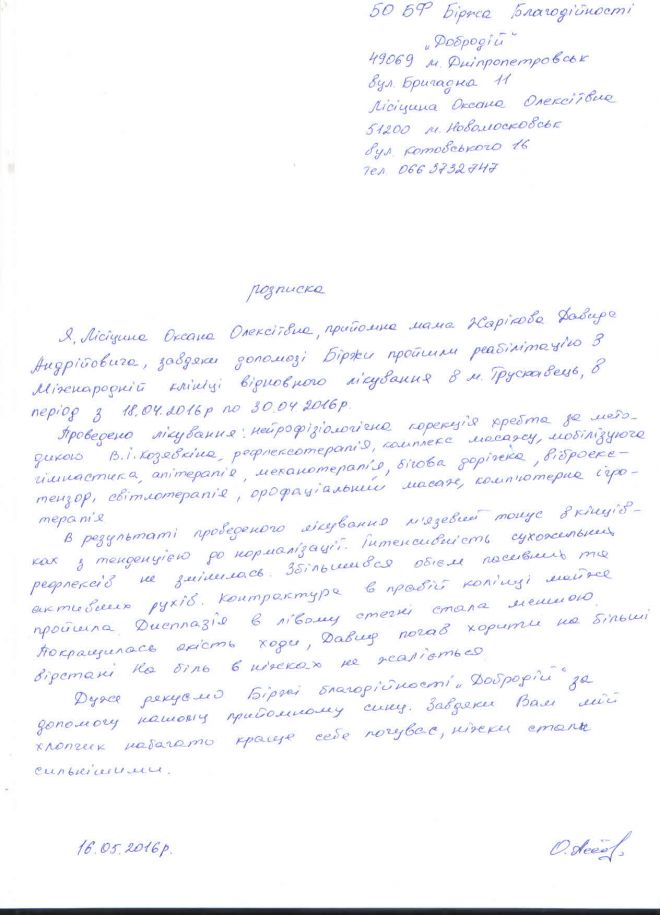 БО БФ Біржа Благодійності
„Добродій“
49069 м. Дніпропетровськ
вул. Бригадна 11
Лісіцина Оксана Олексіївна
51200 м. Новомосковськ
вул. Котовського 16
тел. 066 3732747
розписка
Я, Лісіцина Оксана Олексіївна, прийомна мама Жарікова Давида
Андрійовича, завдяки допомозі Біржи пройшли реабілітацію в
Міжнародній клініці відновного лікування в м. Трускавець, в
період з 18.04.2016р по 30.04 2016р.
Проведено лікування: нейрофізіологічна корекція хребта за мето-
дикою В.І. Козявкіна, рефлексотерапія, комплекс масажу, мобілізуюча
гімнастика, апітерапія, механотерапія, бігова доріжка, віброекс-
тензор, світлотерапія, орофаціальний масаж, комп'ютерна ігро-
терапія
В результаті проведеного лікування м'язевий тонус в кінців-
ках з тенденцією до нормалізації. Інтенсивність сухожильних
рефлексів не змінилась. Збільшився обсєм пасивних та
активних рухів. Контрактура в правій колінці майже
пройшла. Дисплазія в лівому стегні стала меншою.
Покращилась якість ходи, Давид почав ходити на більші
відстані На біль в ніжках не жаліється.
Дуже дякуємо Біржі благодійності „Добродій“ за
допомогу нашому прийомному сину. Завдяки Вам мій
хлопчик набагато краще себе почуває, ніжки стали
сильнішими.
16.05.2016р.